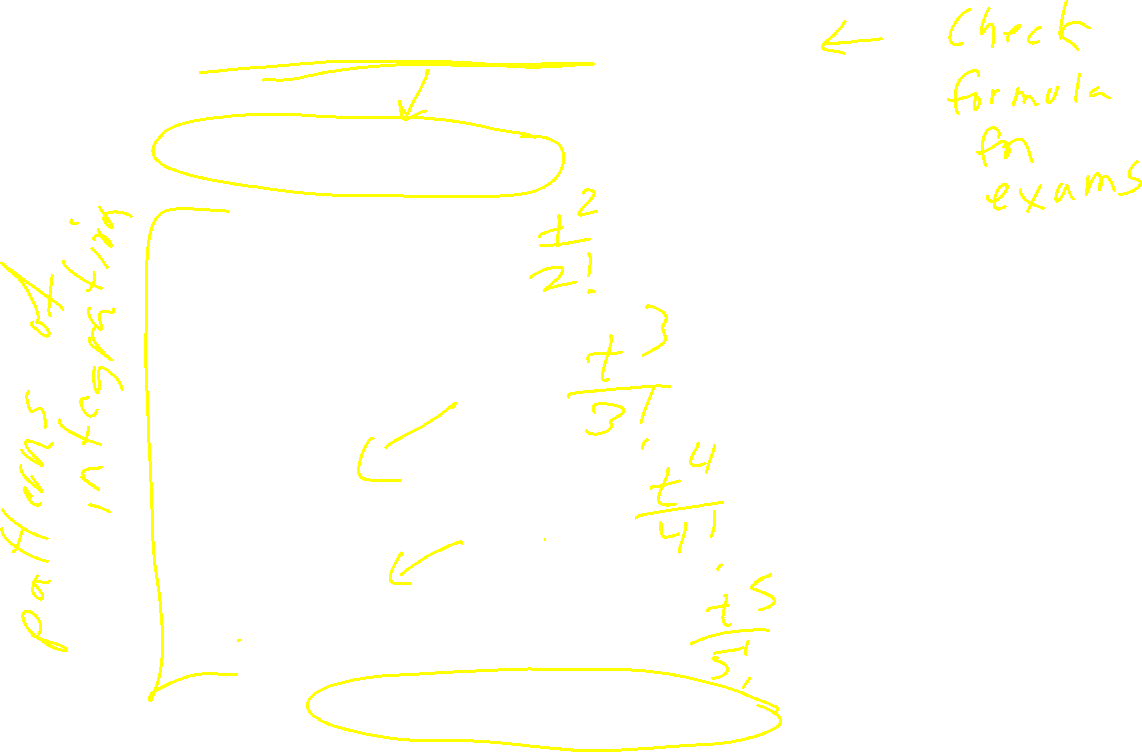 check
formula
for
exams
patterns of
integration
t^2/2!
t^3/3!
t^4/4!
t^5/5!